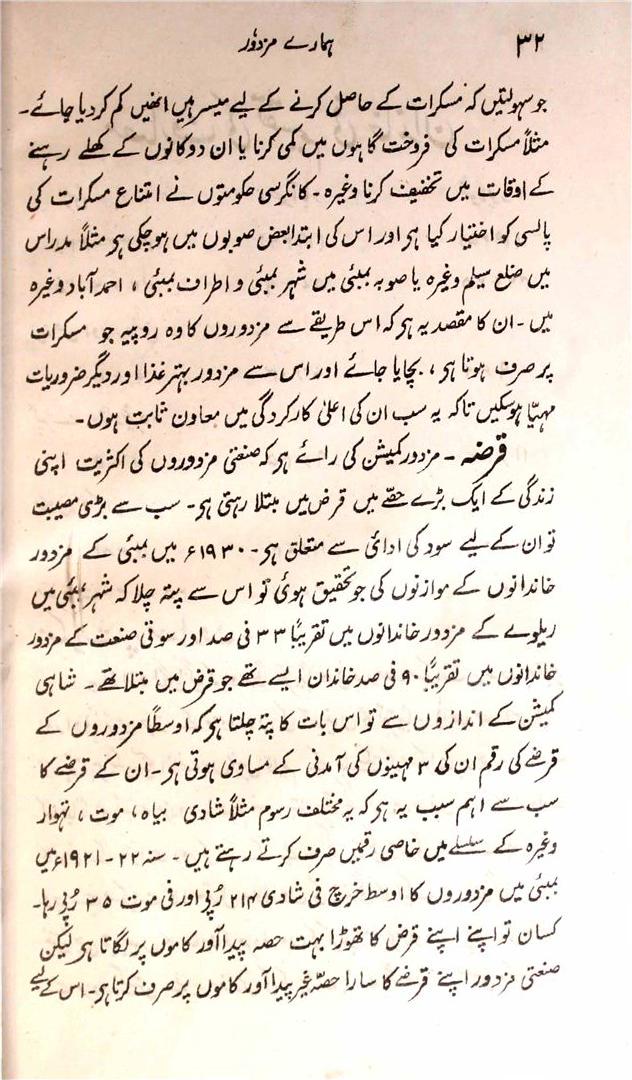 ۳۲ ہمارے مزدور
جو سہولتیں کہ مسکرات کے حاصل کرنے کے لیے میسر ہیں انھیں کم کر دیا جائے۔
مثلاً مسکرات کی فروخت گاہوں میں کمی کرنا یا ان دوکانوں کے کھلے رہنے
کے اوقات میں تخفیف کرنا وغیرہ۔ کانگرسی حکومتوں نے امتناع مسکرات کی
پالسی کو اختیار کیا ہی اور اس کی ابتدا بعض صوبوں میں ہو چکی ہی مثلاً مدراس
میں ضلع سیلم وغیرہ یا صوبہ بمبئی میں شہر بمبئی و اطراف بمبئی، احمدآباد وغیرہ
میں۔ ان کا مقصد یہ ہی کہ اس طریقے سے مزدوروں کا وہ روپیہ جو مسکرات
پر صرف ہوتا ہی، بچایا جائے اور اس سے مزدور بہتر غذا اور دیگر ضروریات
مہیّا ہو سکیں تاکہ یہ سب ان کی اعلیٰ کارکردگی میں معاون ثابت ہوں۔
قرضہ۔ مزدور کمیشن کی رائے ہی کہ صنعتی مزدوروں کی اکثریت اپنی
زندگی کے ایک بڑے حصّے میں قرض میں مبتلا رہتی ہی۔ سب سے بڑی مصیبت
تو ان کے لیے سود کی ادائی سے متعلق ہی۔ ۱۹۳۰ء میں بمبئی کے مزدور
خاندانوں کے موازنوں کی جو تحقیق ہوئی تو اس سے پتہ چلا کہ شہر بمبئی میں
ریلوے کے مزدور خاندانوں میں تقریباً ۳۳ فی صد اور سوتی صنعت کے مزدور
خاندانوں میں تقریباً ۹۰ فی صد خاندان ایسے تھے جو قرض میں مبتلا تھے۔ شاہی
کمیشن کے اندازوں سے تو اس بات کا پتہ چلتا ہی کہ اوسطاً مزدوروں کے
قرضے کی رقم ان کی ۳ مہینوں کی آمدنی کے مساوی ہوتی ہی۔ ان کے قرضے کا
سب سے اہم سبب یہ ہی کہ یہ مختلف رسوم مثلاً شادی بیاہ، موت، تہوار
وغیرہ کے سلسلے میں خاصی رقمیں صرف کرتے رہتے ہیں۔ سنہ ۲۲-۱۹۲۱ء میں
بمبئی میں مزدوروں کا اوسط خرچ فی شادی ۲۱۴ رُپی اور فی موت ۳۵ رُپی رہا۔
کسان تو اپنے اپنے قرض کا تھوڑا بہت حصہ پیداآور کاموں پر لگاتا ہی لیکن
صنعتی مزدور اپنے قرضے کا سارا حصّہ غیر پیداآور کاموں پر صرف کرتا ہی۔ اس کے لیے